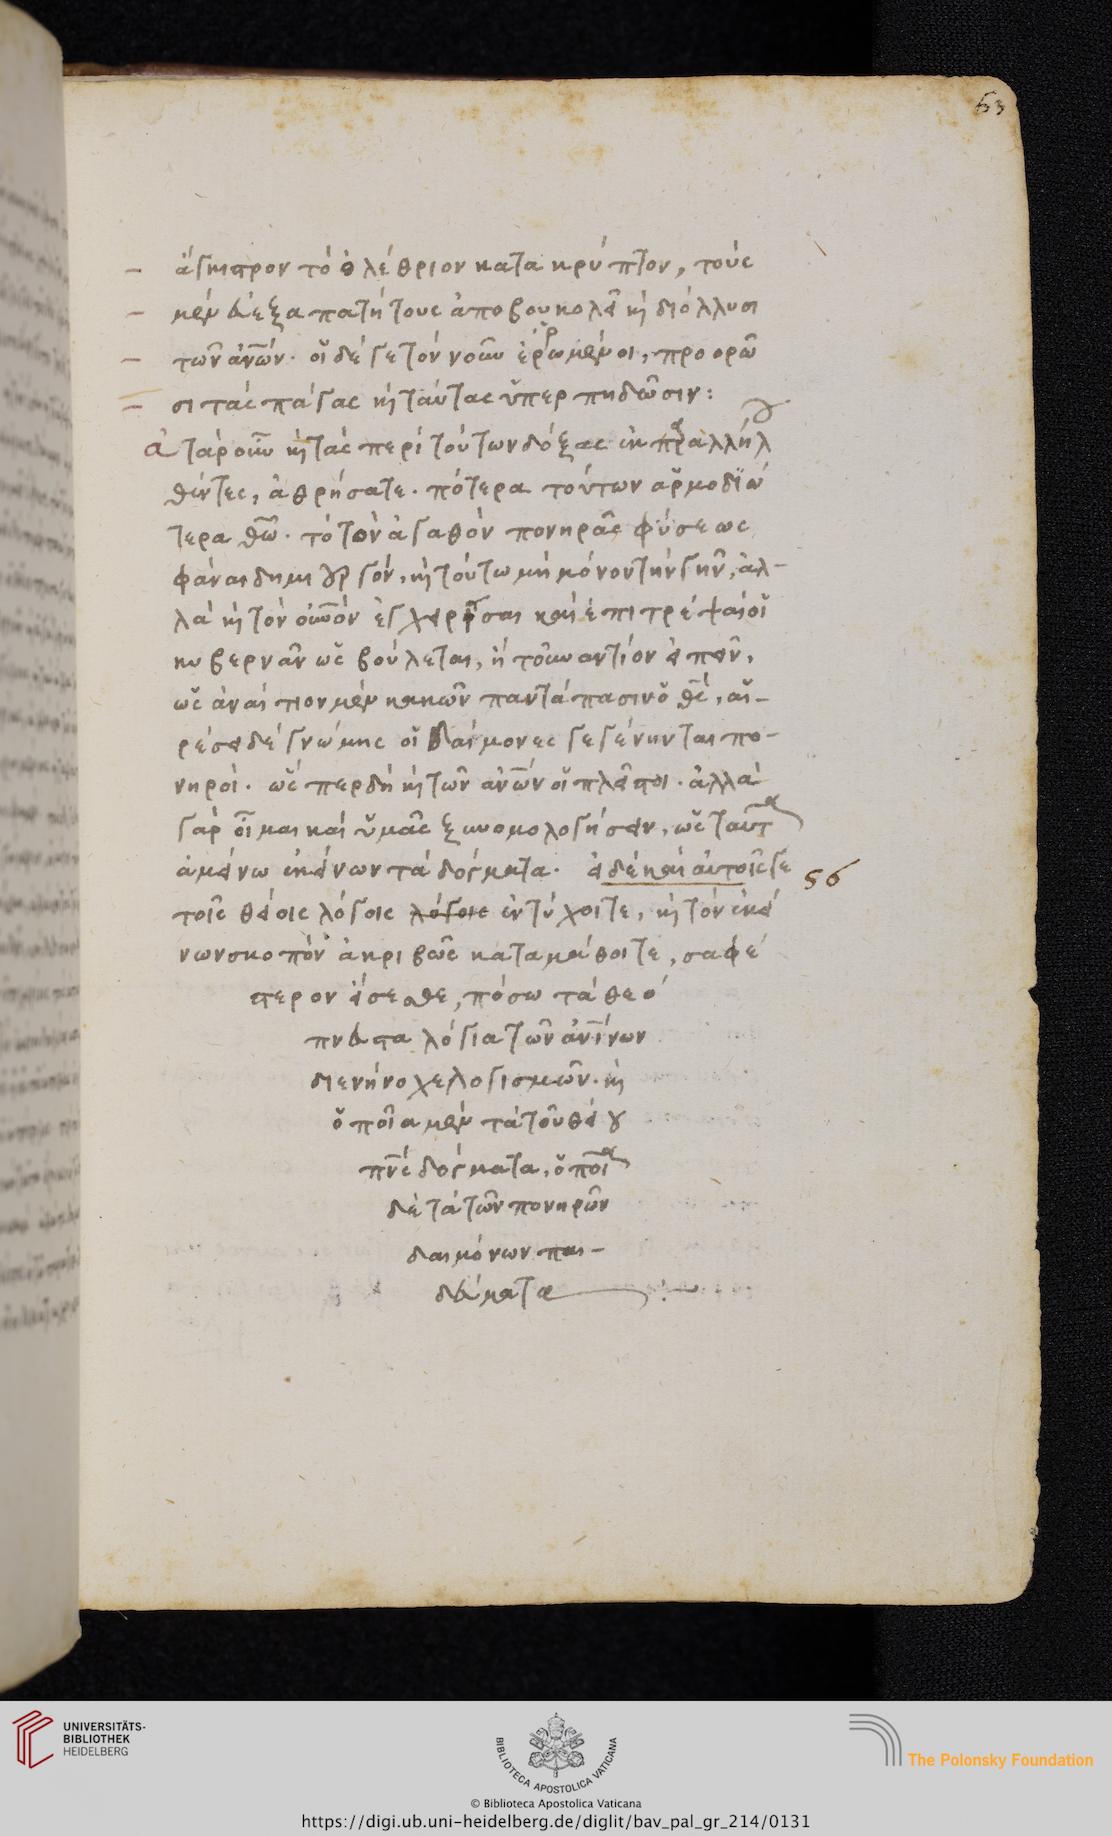 63
ἄγκιστρον τὸ ὀλέθριον κατακρύπτον, τοὺς
μὲν εὐεξαπατήτους ἀποβουκολεῖ κỳ διόλλυσι
τῶν ἀν̅ω̅ν. οἱ δέ γε τὸν νοῦν ἐρρωμένοι, προορῶ
σι τὰς πάγας κỳ ταύτας ὑπερπηδῶσιν:
ἀτὰρ οὖν κỳ τὰς περὶ τούτων δόξας ἐκ παραλλήλου
θέντες, ἀθρήσατε. πότερα τούτων ἁρμοδιώ
τερα θ̅ω̅. τὸ τὸν ἀγαθὸν πονηρᾶς φύσεως
φάναι δημιουργόν, κỳ τούτω μὴ μόνον τὴν γῆν, ἀλ-
λὰ κỳ τὸν οὐ̅ν̅ον ἐγχειρίσαι καὶ ἐπιτρέψαι οἱ
κυβερνᾶν ὡς βούλεται, ἢ τοὐναντίον εἰπεῖν,
ὡς ἀναίτιον μὲν κακῶν παντάπασιν ὁ θ̅ς̅, αἱ-
ρέσει δὲ γνώμης οἱ δαίμονες γεγένηνται πο-
νηροί. ὥσπερ δὴ κỳ τῶν ἀν̅ω̅ν οἱ πλεῖστοι. ἀλλὰ
γὰρ οἶμαι καὶ ὑμᾶς ξυνομολογήσειν, ὡς ταῦτα
ἀμείνω ἐκείνων τὰ δόγματα. εἰ δὲ καὶ αὐτοῖς γε
56
τοῖς θείοις λόγοις λόγοις ἐντύχοιτε, κỳ τὸν ἐκεί
νων σκοπὸν ἀκριβῶς καταμάθοιτε, σαφέ
στερον εἴσεσθε, πόσω τὰ θεό
πνευστα λόγια τῶν ἀν̅ί̅νων
διενήνοχε λογισμῶν. κỳ
ὁποῖα μὲν τὰ τοῦ θείου
πν̅ς̅ δόγματα, ὁποῖα
δὲ τὰ τῶν πονηρῶν
δαιμόνων παι-
δεύματα
UNIVERSITÄTS-
BIBLIOTHEK
HEIDELBERG
BIBLIOTECA APOSTOLICA VATICANA
© Biblioteca Apostolica Vaticana
The Polonsky Foundation
https://digi.ub.uni-heidelberg.de/diglit/bav_pal_gr_214/0131